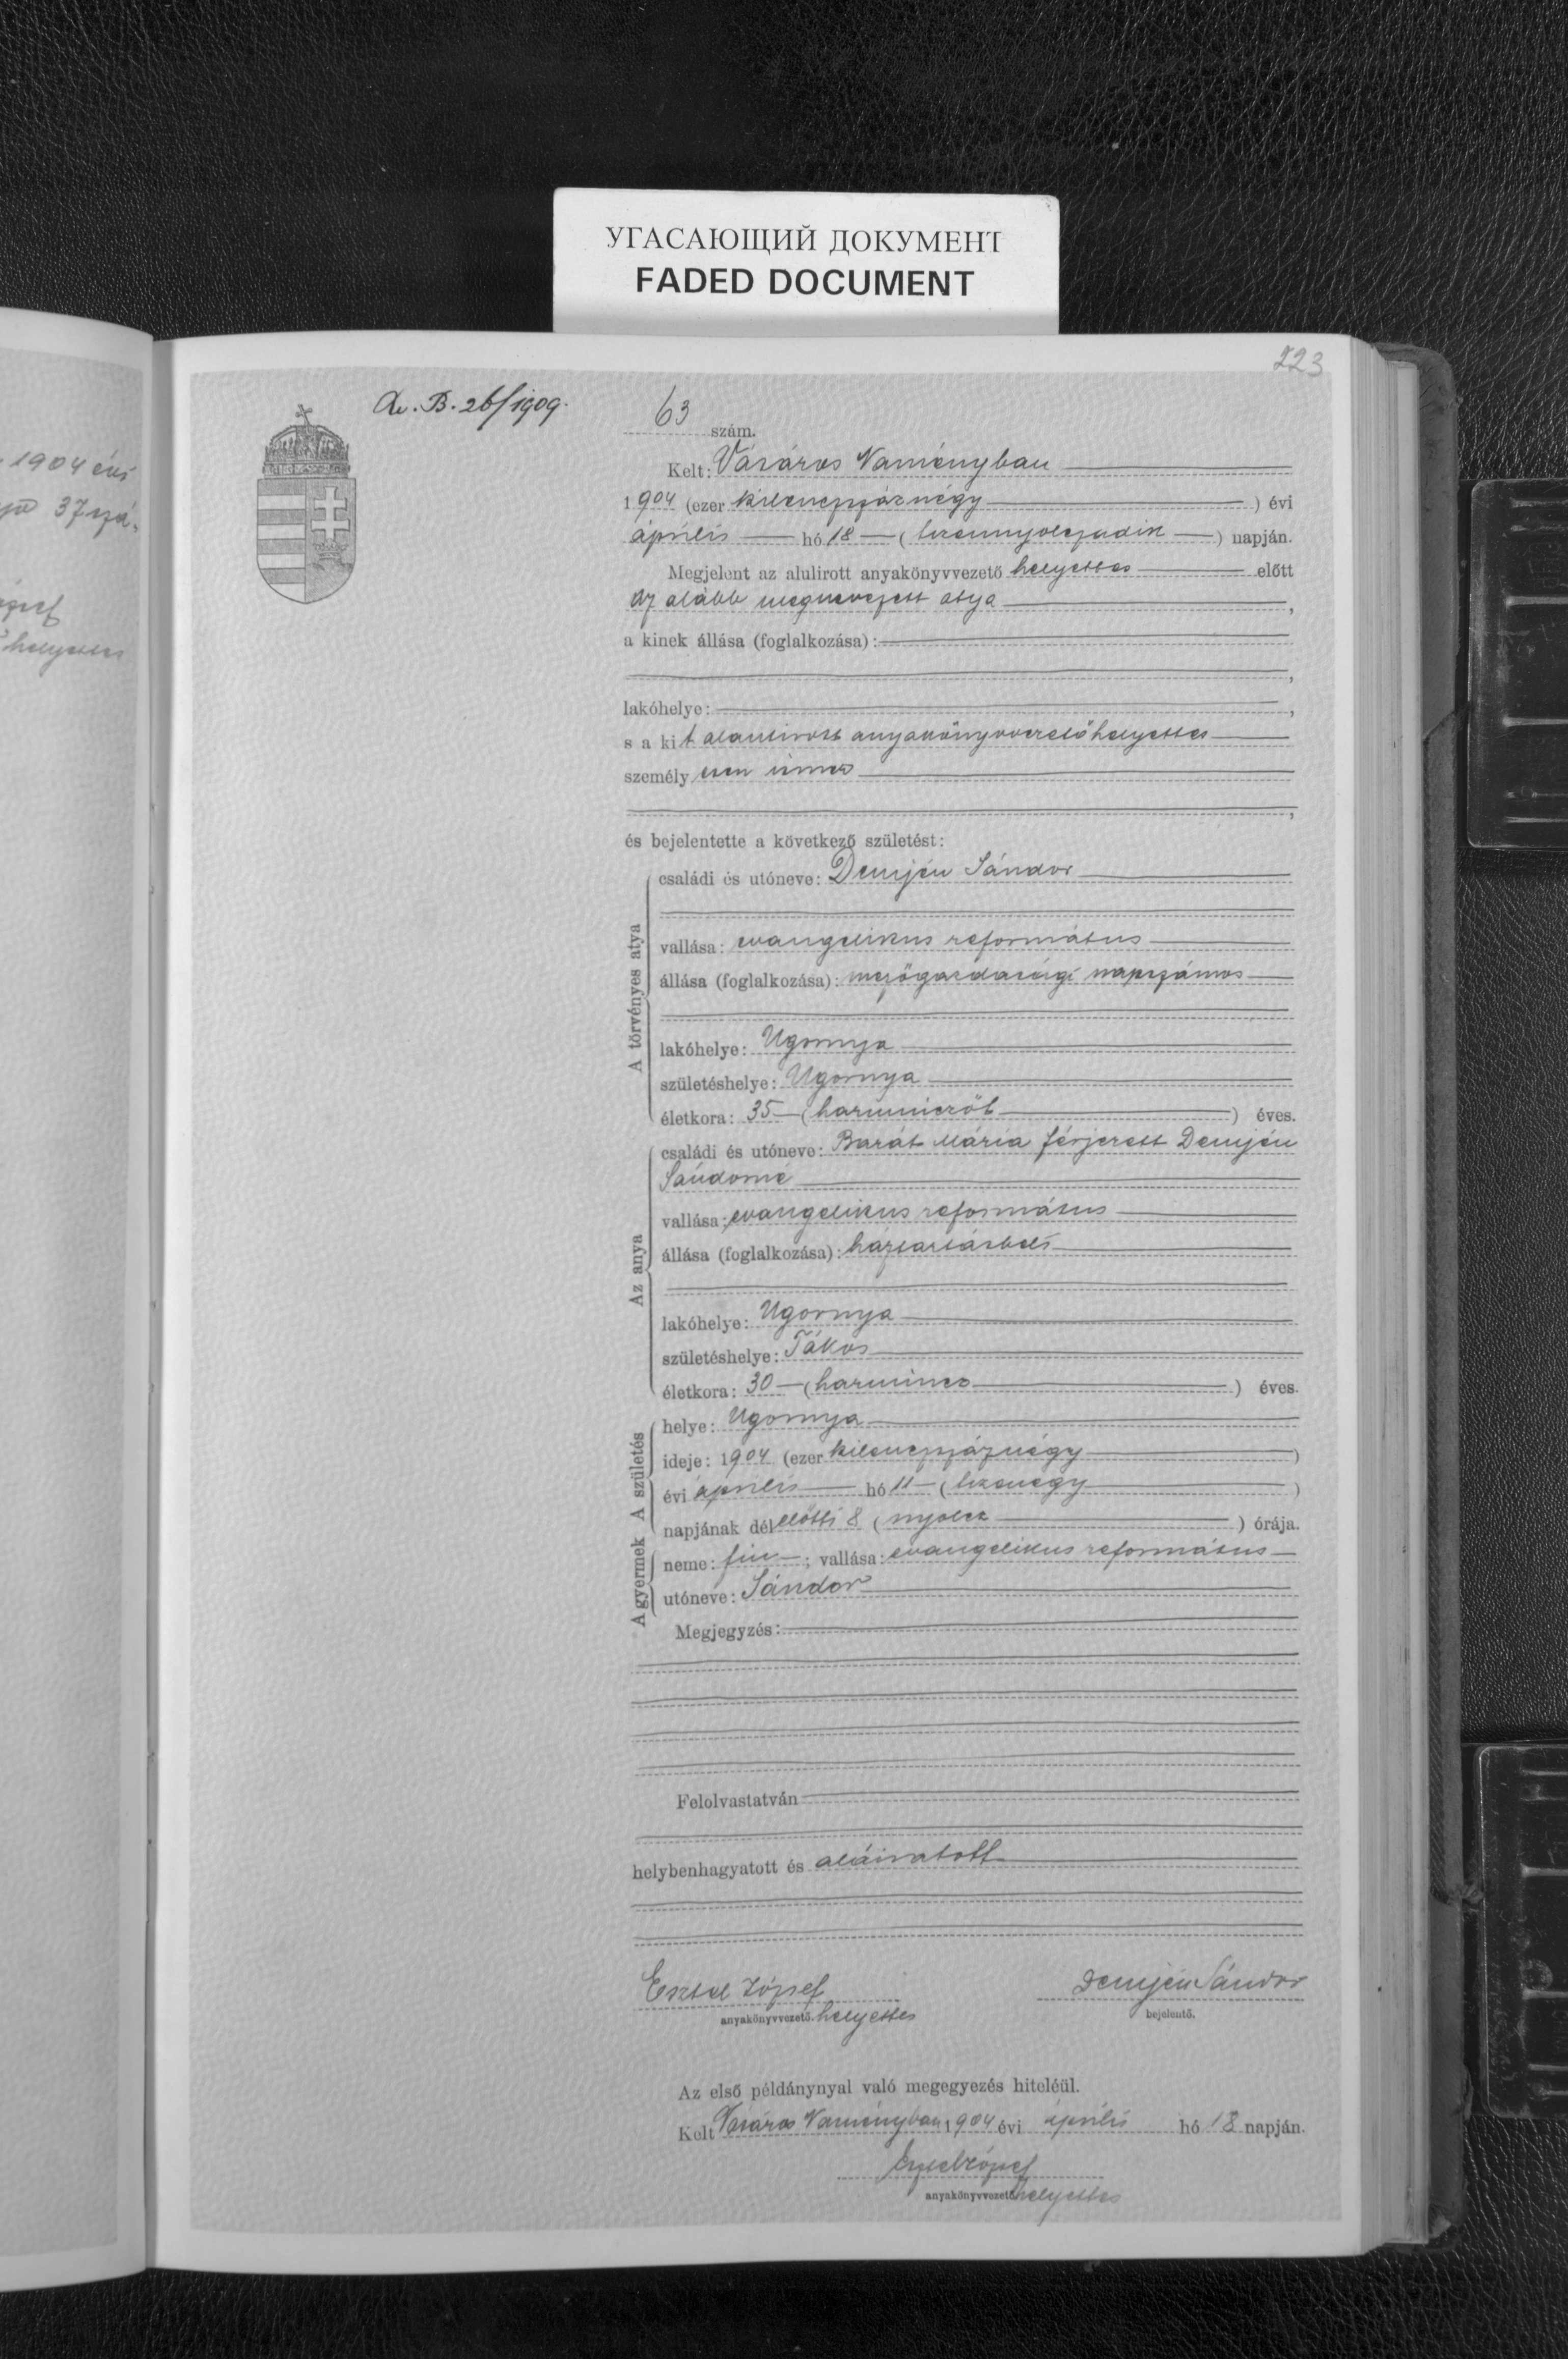 УГАСАЮЩИЙ ДОКУМЕНТ
FADED DOCUMENT
223
1904 évi
37 szá-
József
helyettes
A. B. 26/1909.
63 szám.
Kelt: Vásáros Naményban
1904 (ezer kilenczszáznégy) évi
április hó 18 (tizennyolczadik) napján.
Megjelent az alulirott anyakönyvvezető helyettes előtt
az alább megnevezett atya,
a kinek állása (foglalkozása):
,
lakóhelye: ,
s a kit alantirott anyakönyvvezető helyettes
személyesen ismer
,
és bejelentette a következő születést:
A törvényes atya
családi és utóneve: Demjén Sándor
vallása: evangelikus református
állása (foglalkozása): mezőgazdasági napszámos
lakóhelye: Ugornya
születéshelye: Ugornya
életkora: 35 (harminczöt) éves.
Az anya
családi és utóneve: Barát Mária férjezett Demjén
Sándorné
vallása: evangelikus református
állása (foglalkozása): háztartásbeli
lakóhelye: Ugornya
születéshelye: Tákos
életkora: 30 (harmincz) éves.
A születés
helye: Ugornya
ideje: 1904 (ezer kilenczszáznégy)
évi április hó 11 (tizenegy)
napjának délelőtti 8 (nyolcz) órája.
A gyermek
neme: fiu; vallása: evangelikus református
utóneve: Sándor
Megjegyzés:
Felolvastatván
helybenhagyatott és aláiratott
Esztel József
Demjén Sándor
anyakönyvvezető. helyettes
bejelentő.
Az első példánynyal való megegyezés hiteléül.
Kelt Vásáros Naményban 1904 évi április hó 18 napján.
Esztel József
anyakönyvvezető helyettes